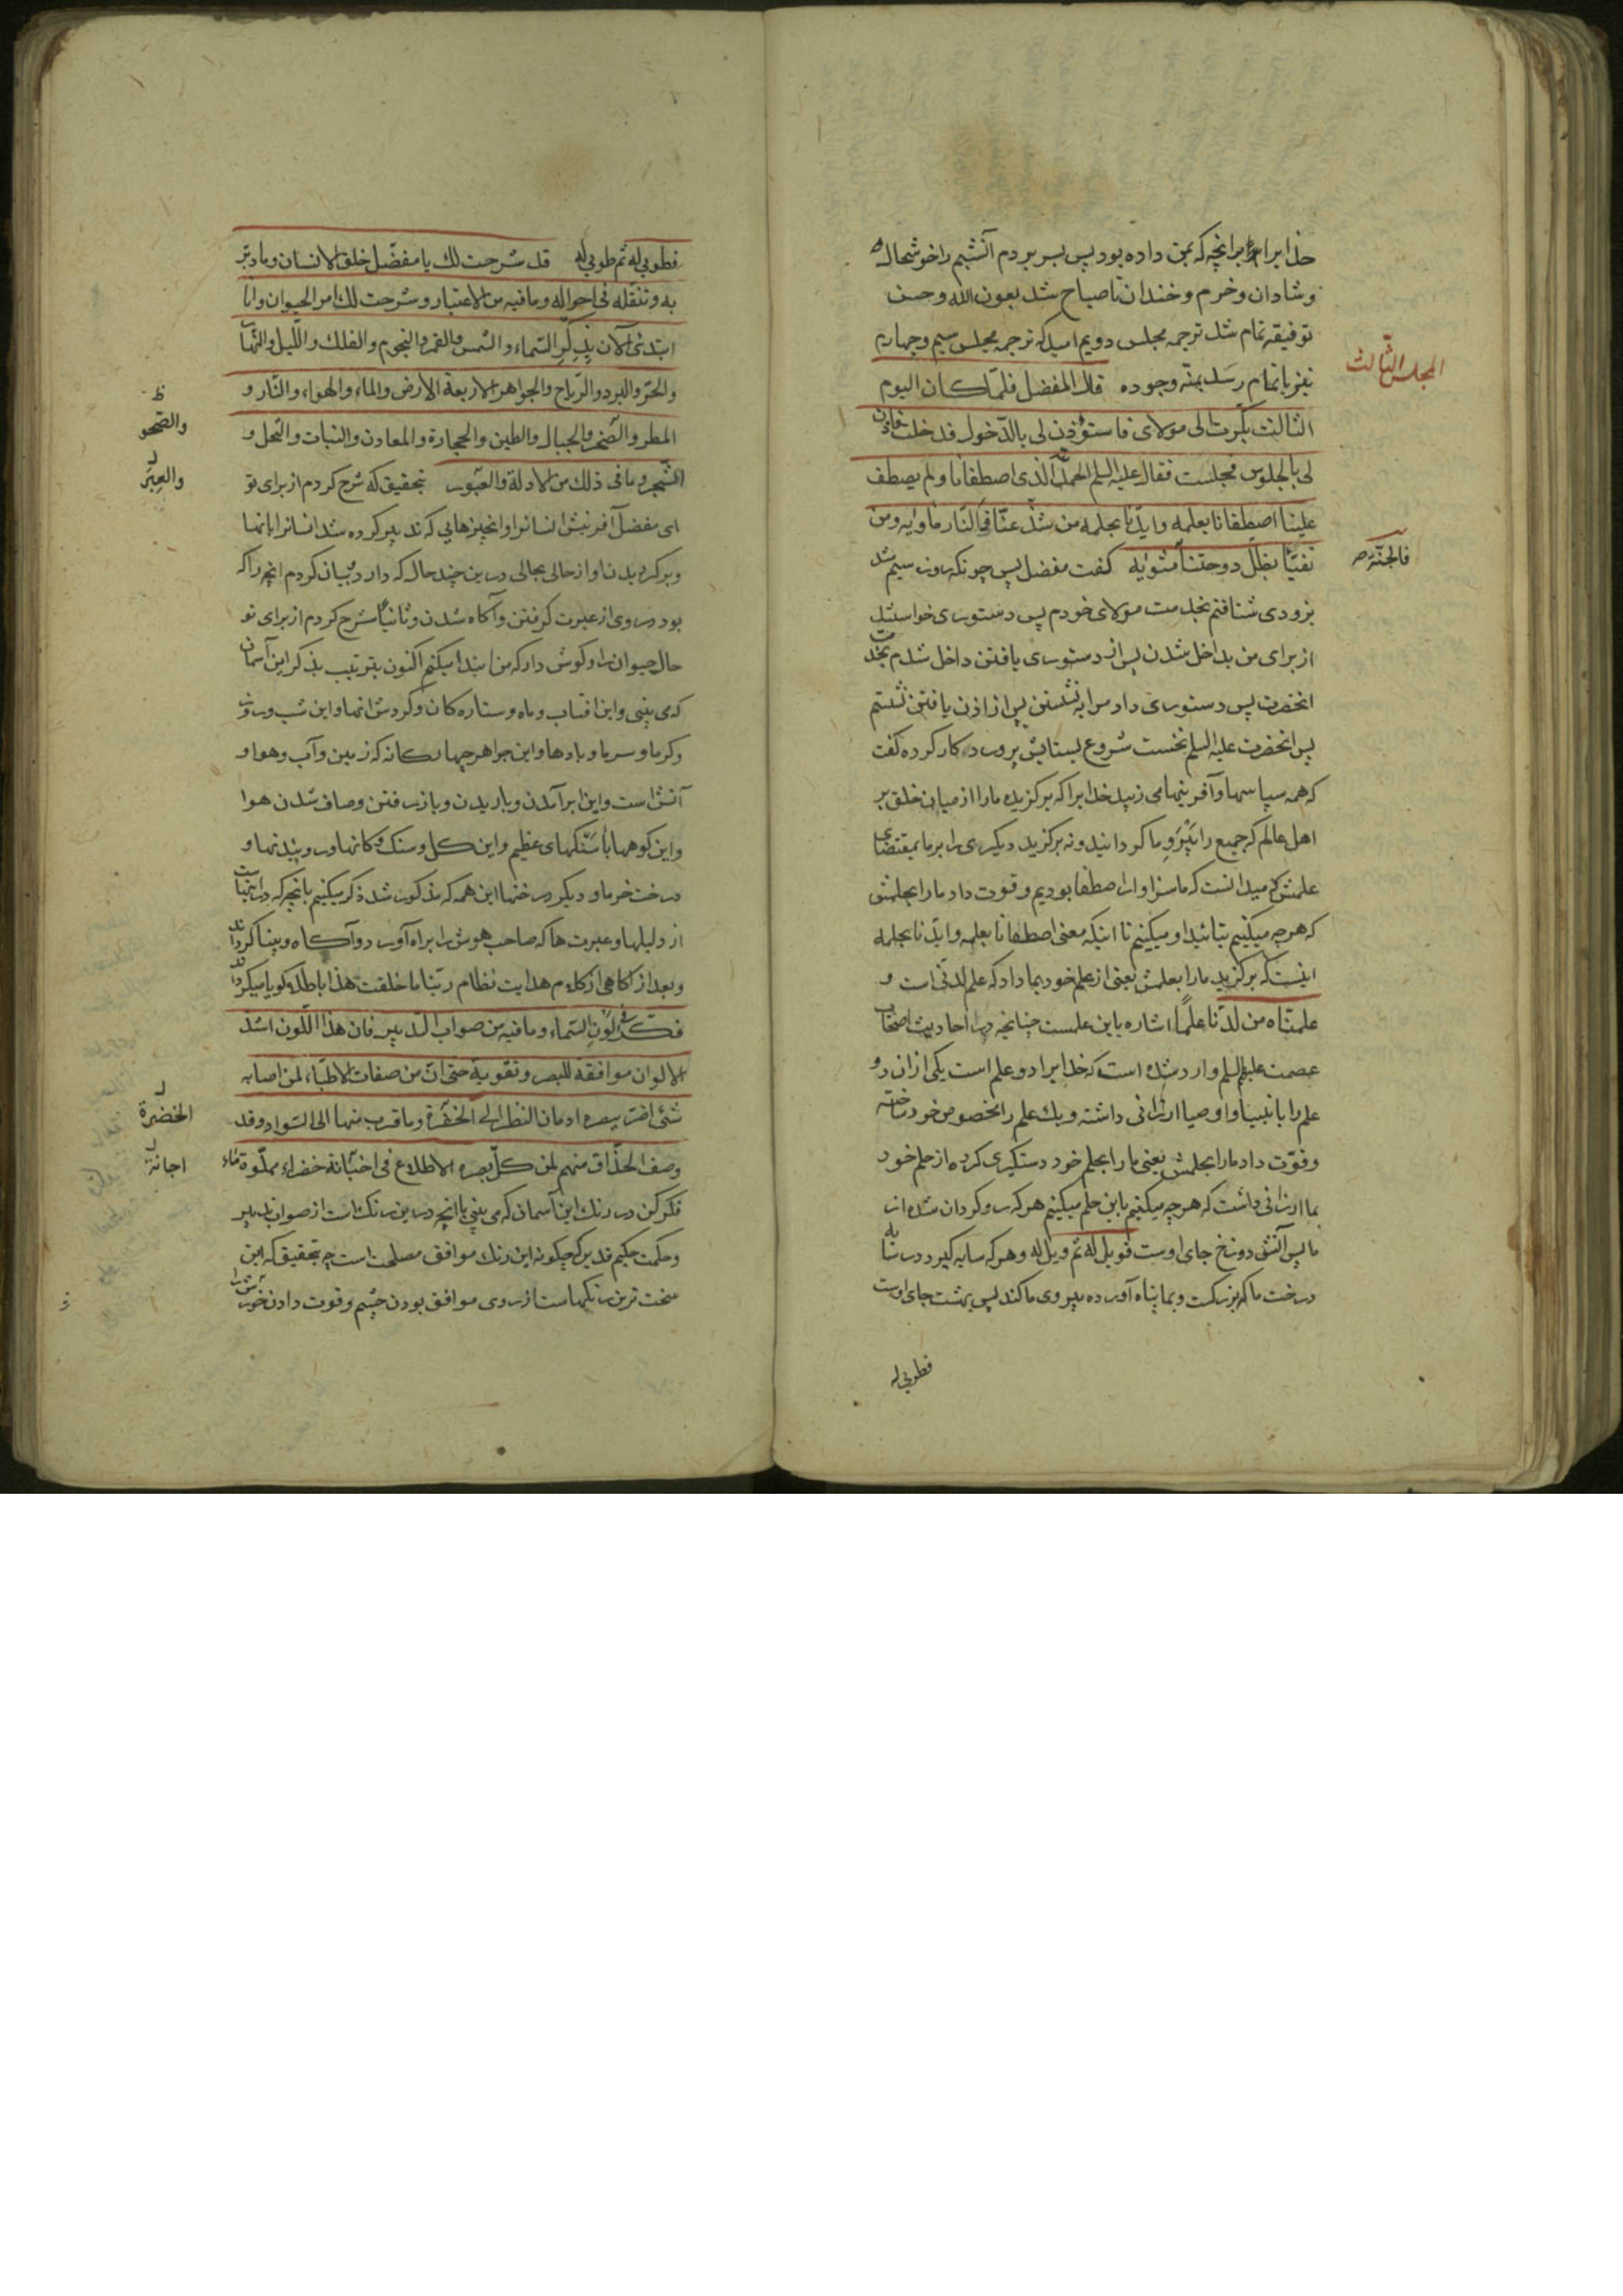 خدایرا برانچه که بمن داده بود پس بسر بردم آنشبم را خوشحال
و شادان و خرم و خندان تا صباح شد بعون الله و حسن
توفیقه تمام شد ترجمه مجلس دویم امید که ترجمه مجلس سیم و چهارم
المجلس الثالث
نیز باتمام رسد بمنّه وجوده قال المفضل فلمّا کان الیوم
الثالث بکّرت الی مولای فاستؤذن لی بالدّخول فدخلت فاذن
لی بالجلوس فجلست فقال علیه السلم الحمد لله الذی اصطفانا ولم یصطف
علینا اصطفانا بعلمه وایّدنا بحلمه من شذّ عنّا فالنّار ماوایه ومن
تفیّأ بظلّ دوحتنا مثوایه کفت مفضل پس چونکه روز سیم شد
فالجنّة
بزودی شتافتم بخدمت مولای خودم پس دستوری خواستند
از برای من بداخل شدن پس از دستوری یافتن داخل شدم بخدمت
انحضرت پس دستوری داد مرا به نشستن پس از اذن یافتن نشستم
پس انحضرت علیه السلم نخست شروع بستایش پروردکار کرده کفت
که همه سپاسها و آفرینها می زیبد خدایرا که برکزیده ما را از میان خلق بر
اهل عالم که جمیع را پیرو ما کردانید و نه برکزید دیکری را بر ما بمقتضای
علمش که میدانست که ما سزاوار اصطفا بودیم و قوت داد ما را بحلمش
که هرچه میکنیم بتائید او میکنیم تا اینکه معنی اصطفانا بعلمه وایّدنا بحلمه
اینست که برکزید ما را بعلمش یعنی از علم خود بما داد که علم لدنّی است و
علمناه من لدنّا علمًا اشاره باین علمست چنانچه در احادیث اصحاب
عصمت علیهم السلم وارد شده است که خدایرا دو علم است یکی از ان دو
علم را بانبیا و اوصیا ارزانی داشته و یک علم را مخصوص خود ساخته
و قوّت داد ما را بحلمش یعنی ما را بحلم خود دستکیری کرده از حلم خود
بما ارزانی داشت که هرچه میکنیم باین حلم میکنیم هر که روکردان شد از
ما پس آتش دوزخ جای اوست فویل له ثم ویل له و هر که سایه کیرد در سایه
درخت ما که بزرکست و بما پناه آورده پیروی ما کند پس بهشت جای اوست
فطوبی له
فطوبی له ثم طوبی له قد شرحت لک یا مفضّل خلق الانسان وما دبّر
به وتنقّله فی احواله وما فیه من الاعتبار وشرحت لک امر الحیوان وانا
ابتدئ الآن بذکر السّماء والشمس والقمر والنجوم والفلک واللّیل والنّهار
والحرّ والبرد والرّیاح والجواهر الاربعة الارض والماء والهواء والنّار و
ظ
والصّحو
المطر والصّخر والجبال والطین والحجارة والمعادن والنبات والنخل و
والعِبَر
الشّجر وما فی ذلک من الادلة والعبور بتحقیق که شرح کردم از برای تو
ای مفضل آفرینش انسانرا و انچیزهایی که تدبیر کرده شد انسانرا بانها
و برکردیدن او از حالی بحالی درین چند حال که دارد و بیان کردم انچه را که
بود در وی از عبرت کرفتن و آکاه شدن و ثانیًا شرح کردم از برای تو
حال حیوان را و کوش دار که من ابتدا میکنم اکنون بترتیب بذکر این آسمان
که می بینی و این افتاب و ماه و ستاره کان و کردش انها و این شب و روز
و کرما و سرما و بادها و این جواهر چهارکانه که زمین و آب و هوا و
آتش است و این برآمدن و باریدن و باز رفتن و صاف شدن هوا
و این کوهها با سنکهای عظیم و این کل و سنک و کانها و روییدنها و
درخت خرما و دیکر درختها این همه که مذکور شد ذکر میکنیم بانچه که در اینهاست
از دلیلها و عبرت ها که صاحب هوش را براه آورد و آکاه و بینا کرداند
و بعد از آکاهی از کلام هدایت نظام ربّنا ما خلقت هذا باطلًا کویا میکرداند
فکّر فی لون السّماء وما فیه من صواب التّدبیر فان هذا اللّون اشدّ
الالوان موافقة للبصر وتقویة حتی انّ من صفات الاطبّاء لمن اصابه
شئ اضرّ ببصره ادمان النظر الی الخضرة وما قرب منها الی السّواد وقد
الخضرة
وصف الحذّاق منهم لمن کلّ بصره الاطلاع فی اجّانة خضراء مملّوة ماء
اجانة
فکر کن در رنک این آسمان که می بینی با انچه درین رنک است از صواب تدبیر
و حکمت حکیم قدیر که چکونه این رنک موافق مصلحت است چه بتحقیق که این
سخت ترین رنکهاست از روی موافق بودن چشم و قوت دادن